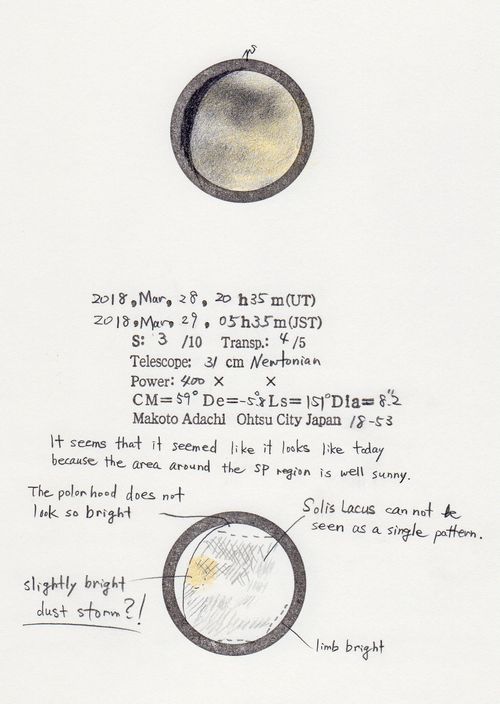 2018, Mar, 28, 20 h 35 m (UT)
2018, Mar, 29, 05 h 35 m (JST)
S: 3 /10 Transp.: 4 /5
Telescope: 31 cm Newtonian
Power: 400 × ×
CM= 59° De= -5.8 Ls= 151° Dia= 8".2
Makoto Adachi Ohtsu City Japan 18-53
It seems that it seemed like it looks like today
because the area around the SP region is well sunny.
The polar hood does not
look so bright
Solis Lacus can not be
seen as a single pattern.
slightly bright
dust storm?!
limb bright